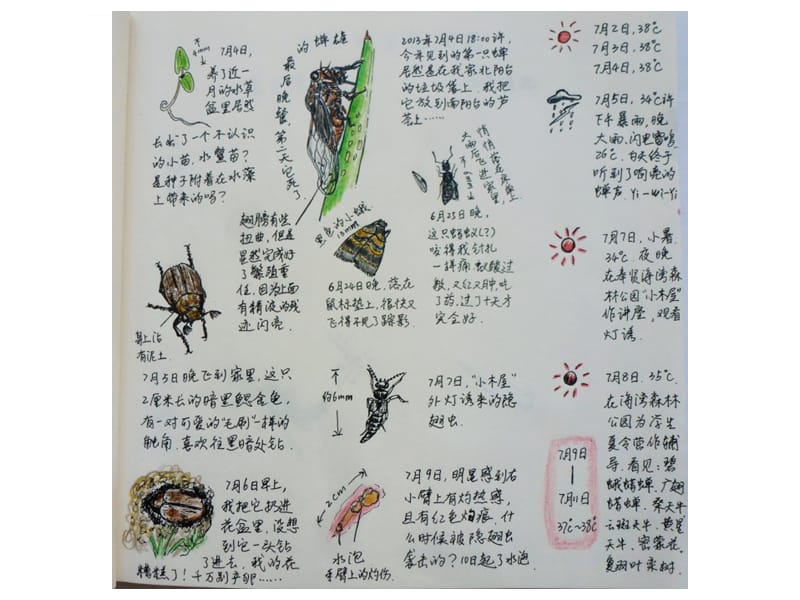 4mm
7月4日,
养了近一
月的水草
盆里居然
长出了一个不认识
的小苗。水鳖苗?
是种子附着在水藻
上带来的吗?
的蝉雄
最后晚餐,第二天它死了
2013年7月4日18:00许,
今年见到的第一只蝉
居然是在我家北阳台
的垃圾筐上。我把
它放到南阳台的芦
荟上……
7月2日,38℃
7月3日,38℃
7月4日,38℃
7月5日,34℃许
下午暴雨,晚
大雨,闪电雷鸣
26℃,白天终于
听到了响亮的
蝉声。Yi-Wi-Yi
大雨后飞进家里,
悄悄落在床桌上
6月23日晚,
这只蚂蚁(?)
咬得我针扎
一样痛,蚁酸过
敏,又红又肿,吃
了药,过了十天才
完全好。
翅膀有些
扭曲,但是
虽然完成好
了繁殖重
任。因为上面
有精液的残
迹闪亮。
黑色的小蛾
13mm
6月24日晚,落在
鼠标垫上,很快又
飞得不见了踪影。
7月7日,小暑。
34℃,夜晚
在奉贤海湾森
林公园"小木屋"
作讲座,观看
灯诱。
身上沾
有泥土。
7月5日晚飞到家里,这只
2厘米长的暗黑鳃金龟,
有一对可爱的"毛刷"一样的
触角。喜欢往黑暗处钻。
不
约6mm
7月7日,"小木屋"
外灯诱来的隐
翅虫。
7月8日,35℃,
在海湾森林
公园为学生
夏令营作辅
导。看见:碧
蛾蜡蝉、广翅
蜡蝉、桑天牛
云斑天牛、黄星
天牛、密蒙花、
复羽叶栾树。
7月9日
|
7月11日
37℃~38℃
7月6日早上,
我把它扔进
花盆里,没想
到它一头钻
了进去,我的花
糟糕了!千万别产卵……
2cm
水泡
手臂上的灼伤。
7月9日,明显感到右
小臂上有灼热感,
且有红色灼痕,什
么时候被隐翅虫
袭击的?10日起了水泡。